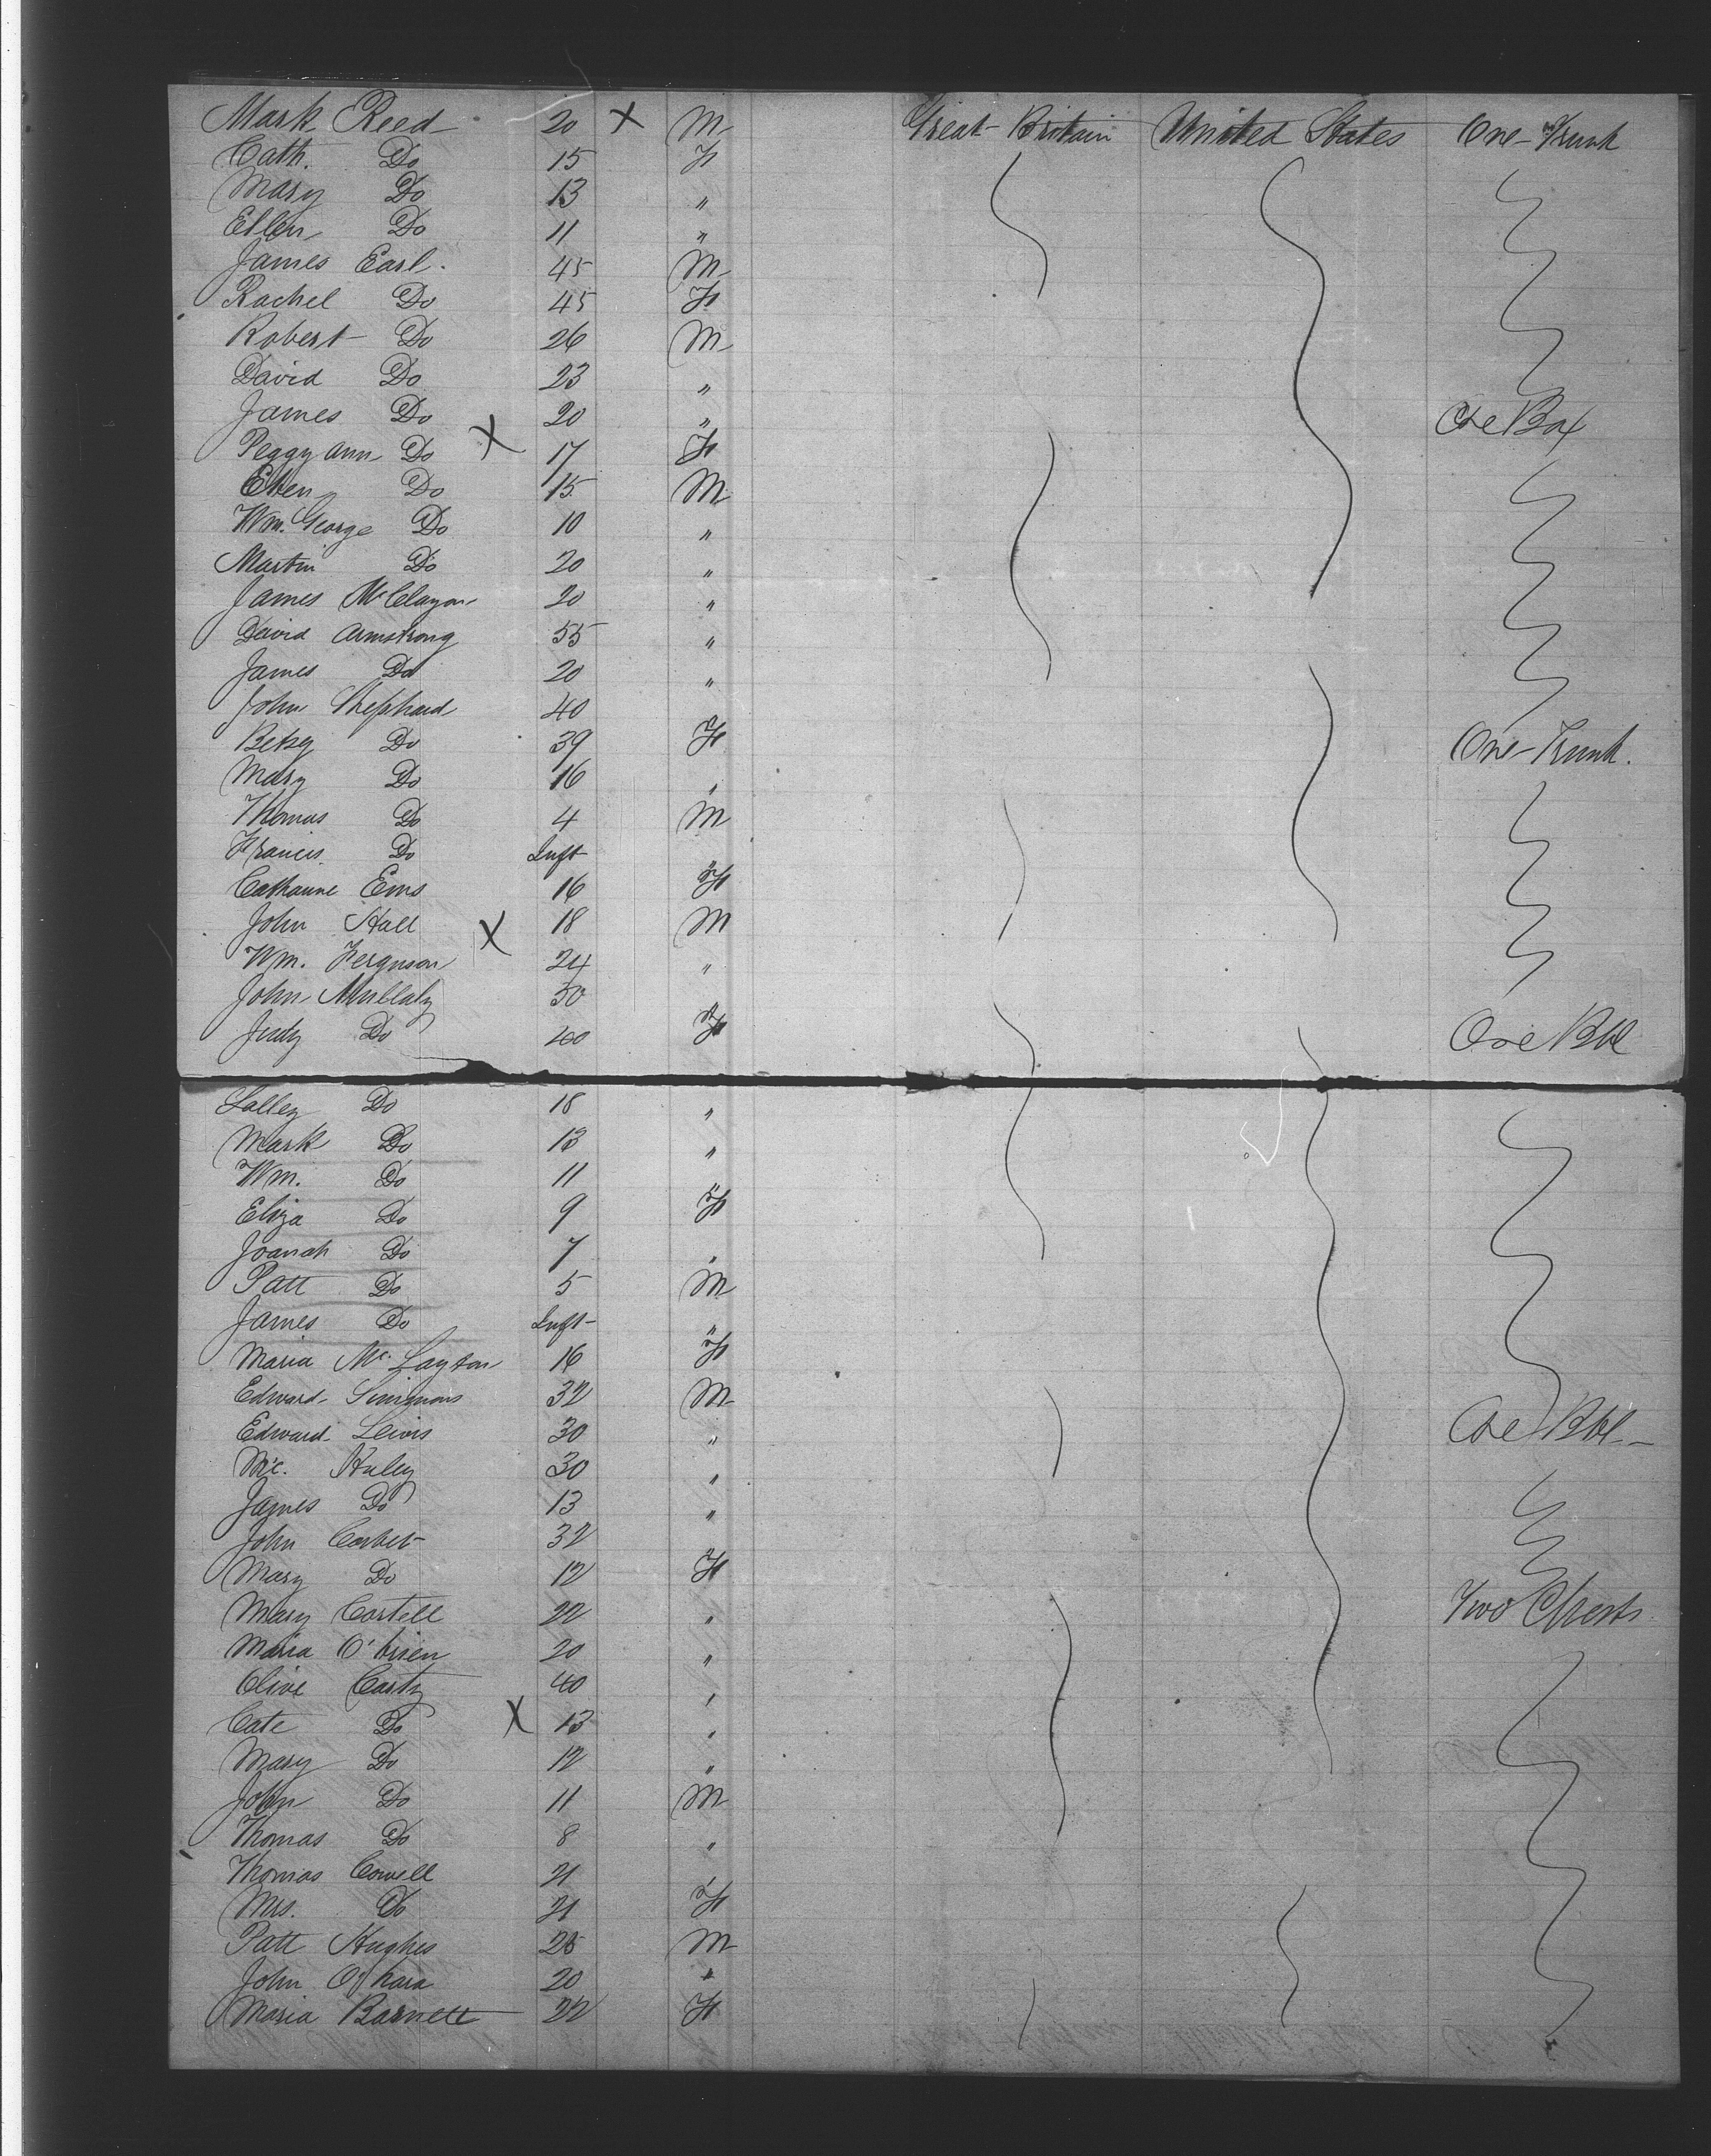 Mark Reed 20 X M Great Britain United States One Trunk
Cath. Do 15 F
Mary Do 13 "
Ellen Do 11 "
James Earl. 45 M
Rachel Do 45 F
Robert Do 26 M
David Do 23 "
James Do 20 " One Box
Peggy Ann Do X 17 F
Eben Do 15 M
Wm. George Do 10 "
Martin Do 20 "
James McClayon 20 "
David Armstrong 55 "
James Do 20 "
John Shephard 40
Betsy Do 39 F One Trunk.
Mary Do 16 "
Thomas Do 4 M
Francis Do Inft "
Catharine Ems 16 F
John Hall X 18 M
Wm. Ferguson 24 "
John Mullaly 50 "
Judy Do 40 F One Bbl
Salley Do 18 "
Mark Do 13 "
Wm. Do 11 "
Eliza Do 9 F
Joanah Do 7 "
Patt Do 5 M
James Do Inft "
Maria McLayton 16 F
Edward Simmons 32 M
Edward Lewis 30 " One Bbl
Mic. Huley 30 "
James Do 13 "
John Corbet 32
Mary Do 12 F
Mary Cortell 22 " Two Chests
Maria O'brien 20 "
Olive Carty 40 "
Cate Do X 13 "
Mary Do 12 "
John Do 11 M
Thomas Do 8 "
Thomas Cowell 21 "
Mrs. Do 21 F
Patt Hughes 25 M
John O'hara 20 "
Maria Barnett 22 F